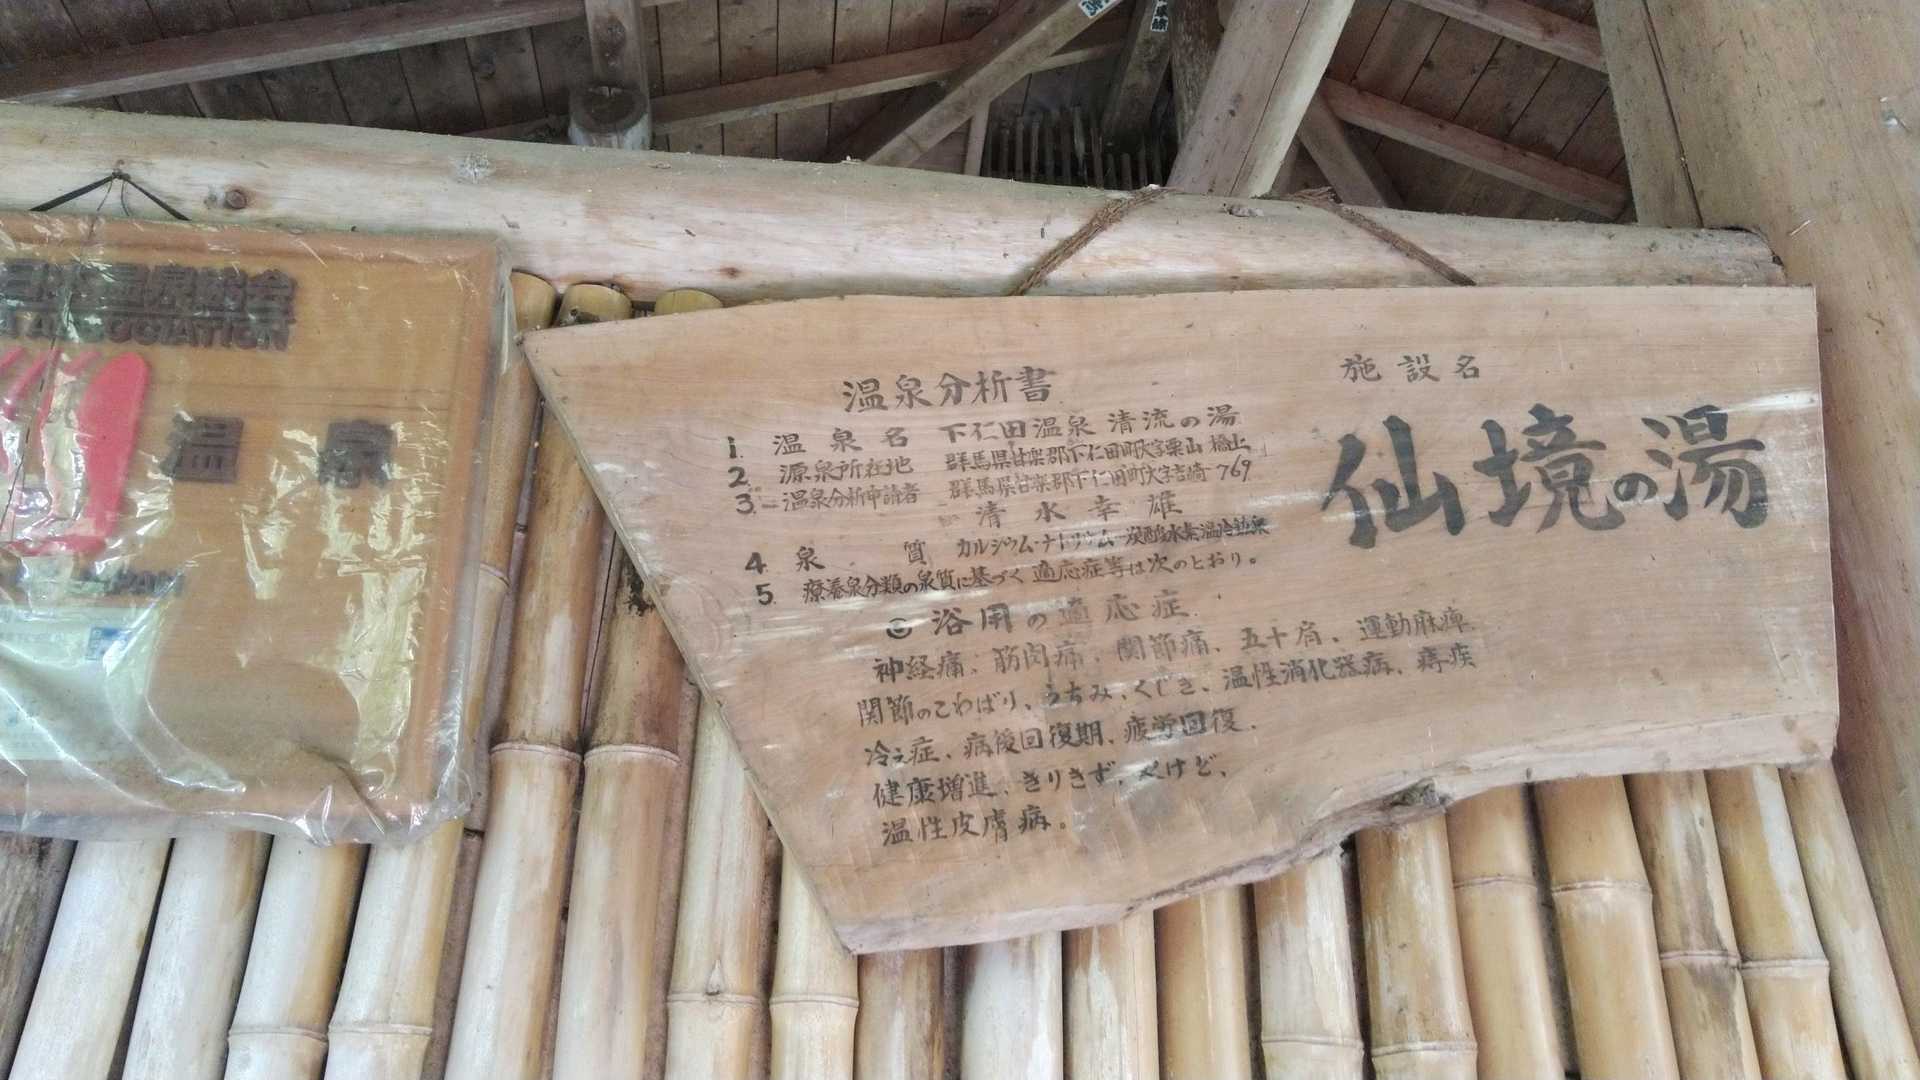 施設名
仙境の湯
温泉分析書
1. 温泉名 下仁田温泉 清流の湯
2. 源泉所在地 群馬県甘楽郡下仁田町大字栗山
3. 温泉分析申請者 群馬県甘楽郡下仁田町大字吉崎769
清水幸雄
4. 泉質 カルシウム・ナトリウムー炭酸水素温冷鉱泉
5. 療養泉分類の泉質に基づく適応症等は次のとおり。
浴用の適応症
神経痛、筋肉痛、関節痛、五十肩、運動麻痺、
関節のこわばり、うちみ、くじき、温性消化器病、痔疾
冷え症、病後回復期、疲労回復、
健康増進、きりきず、やけど、
温性皮膚病。
温泉協会
ASSOCIATION
温泉